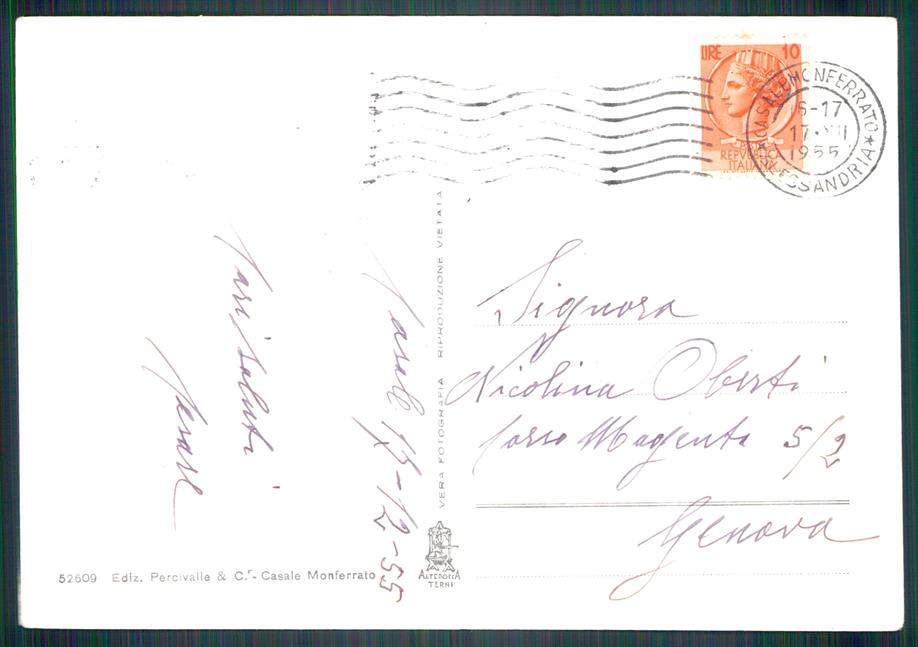 LIRE 10
REPVBBLICA
ITALIANA
CASALE MONFERRATO
16-17
17·XII
1955
ALESSANDRIA
Casale 15-12-55
Cari saluti
Cesare
VERA FOTOGRAFIA RIPRODUZIONE VIETATA
Signora
Nicolina Oberti
Corso Magenta 5/2
Genova
52609 Ediz. Percivalle & C.r - Casale Monferrato
ALTEROCCA
TERNI